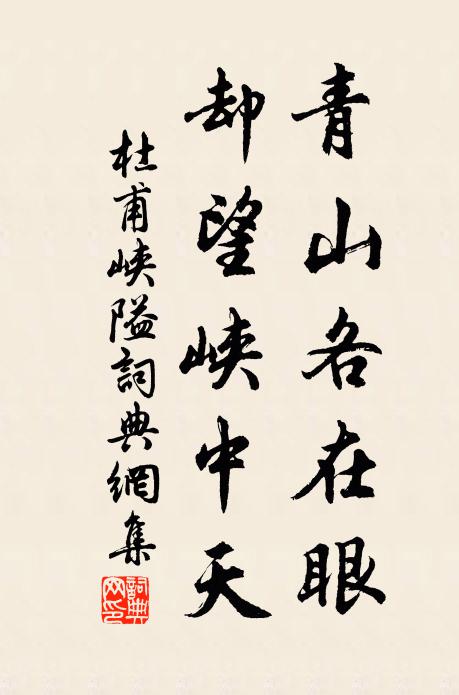 青山各在眼
却望峽中天
杜甫峽隘詞典網集
詞典網印